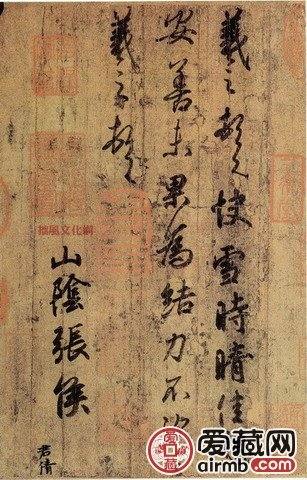 羲之頓首快雪時晴佳
安善未果為結力不次
羲之頓首
山陰張侯
君倩
爱藏网
airmb.com